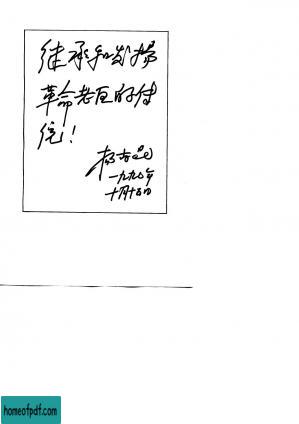 继承和发扬
革命老区的传
统！
杨尚昆
一九九〇年
十月十五日
homeofpdf.com